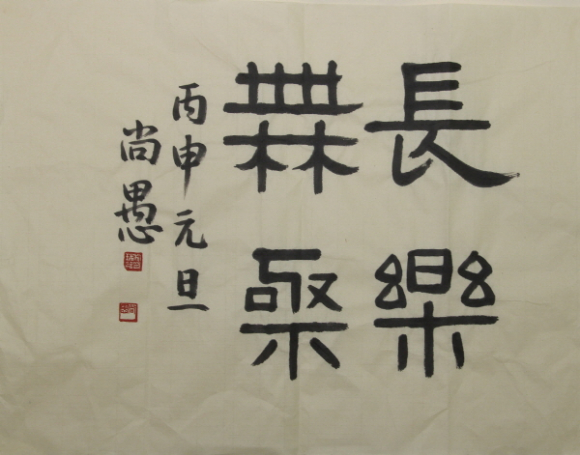 長樂
無極
丙申元旦
尚愚